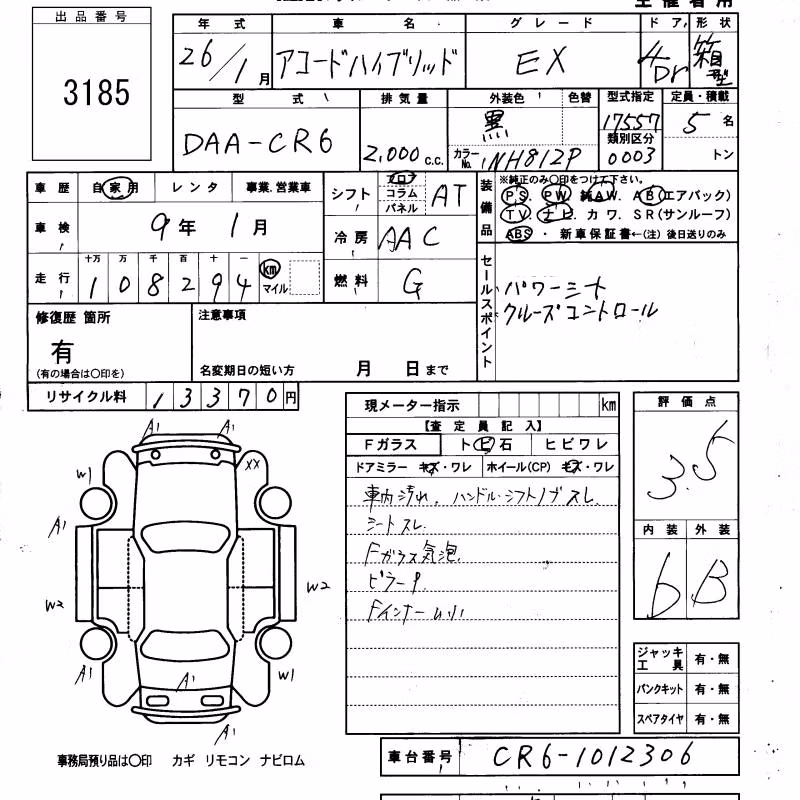 出品番号
3185
年式 車名 グレード ドア 形状
26/1月 アコードハイブリッド EX 4Dr 箱型
型式 排気量 外装色 色替 型式指定 定員・積載
DAA-CR6 2,000c.c. 黒 17557 5名
カラーNo. NH812P 類別区分 0003 トン
車歴 自家用 レンタ 事業.営業車
シフト フロア コラム パネル AT
装備品 ※純正のみ○印をつけて下さい。
PS. PW. 純AW. AB(エアバック)
TV. ナビ. カワ. SR(サンルーフ)
ABS ・ 新車保証書←(注) 後日送りのみ
車検 9年 1月
冷房 AAC
走行 十万 万 千 百 十 一
108294 km マイル
燃料 G
セールスポイント
パワーシート
クルーズコントロール
修復歴 箇所
有
(有の場合は○印を)
注意事項
名変期日の短い方 月 日まで
リサイクル料 13370円
現メーター指示 km
【査定員記入】
Fガラス トビ石 ヒビワレ
ドアミラー キズ・ワレ ホイール(CP) キズ・ワレ
車内汚れ. ハンドル・シフトノブスレ.
シートスレ.
Fガラス気泡.
ピラーP.
Fインナーム小
評価点
3.5
内装 外装
b B
A1 A1
W1 XX
A1
W2 W2
A1 A1 W1
A1
ジャッキ工具 有・無
パンクキット 有・無
スペアタイヤ 有・無
事務局預り品は○印 カギ リモコン ナビロム
車台番号 CR6-1012306